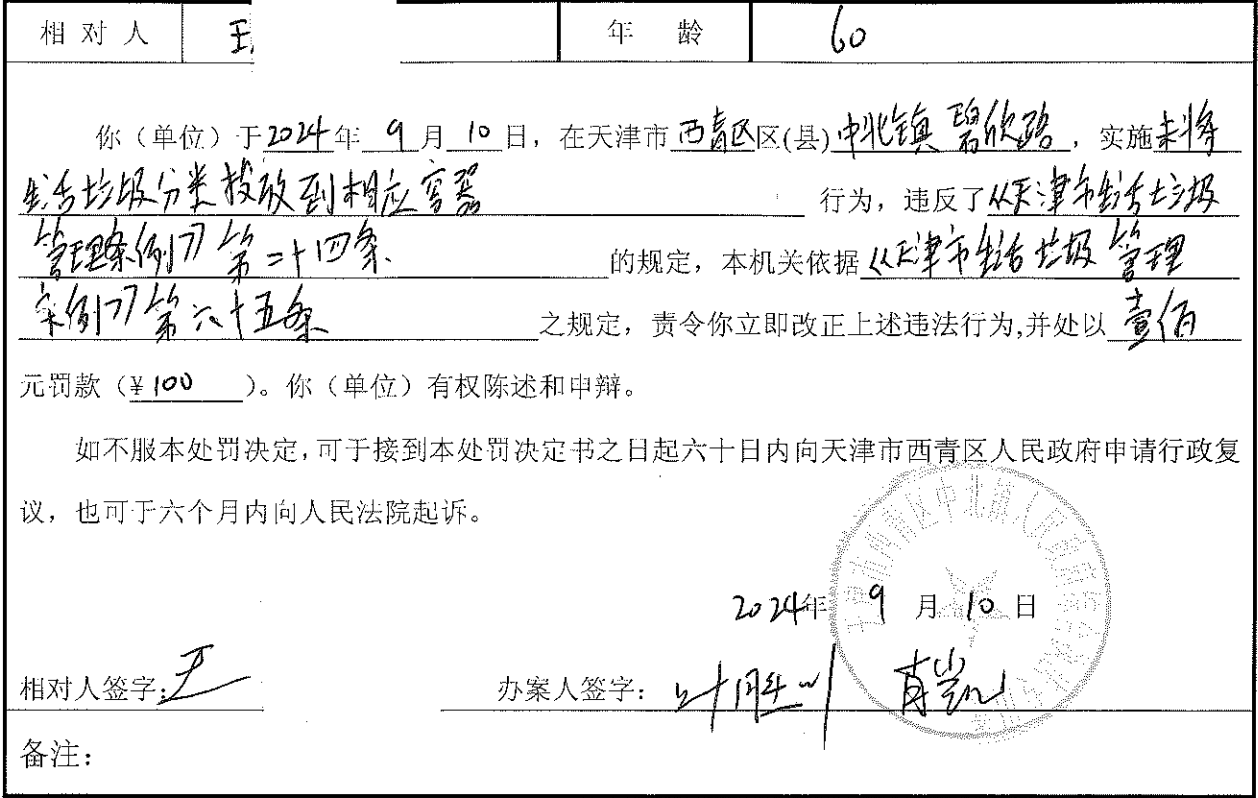 相对人 王 年龄 60
你（单位）于2024年 9月10日，在天津市西青区区(县)中北镇碧欣路，实施未将
生活垃圾分类投放到相应容器 行为，违反了《天津市生活垃圾
管理条例》第二十四条 的规定，本机关依据《天津市生活垃圾管理
条例》第六十五条 之规定，责令你立即改正上述违法行为,并处以壹佰
元罚款（¥100）。你（单位）有权陈述和申辩。
如不服本处罚决定，可于接到本处罚决定书之日起六十日内向天津市西青区人民政府申请行政复
议，也可于六个月内向人民法院起诉。
2024年 9月10日
相对人签字：王 办案人签字：叶胜川 肖岚
备注：